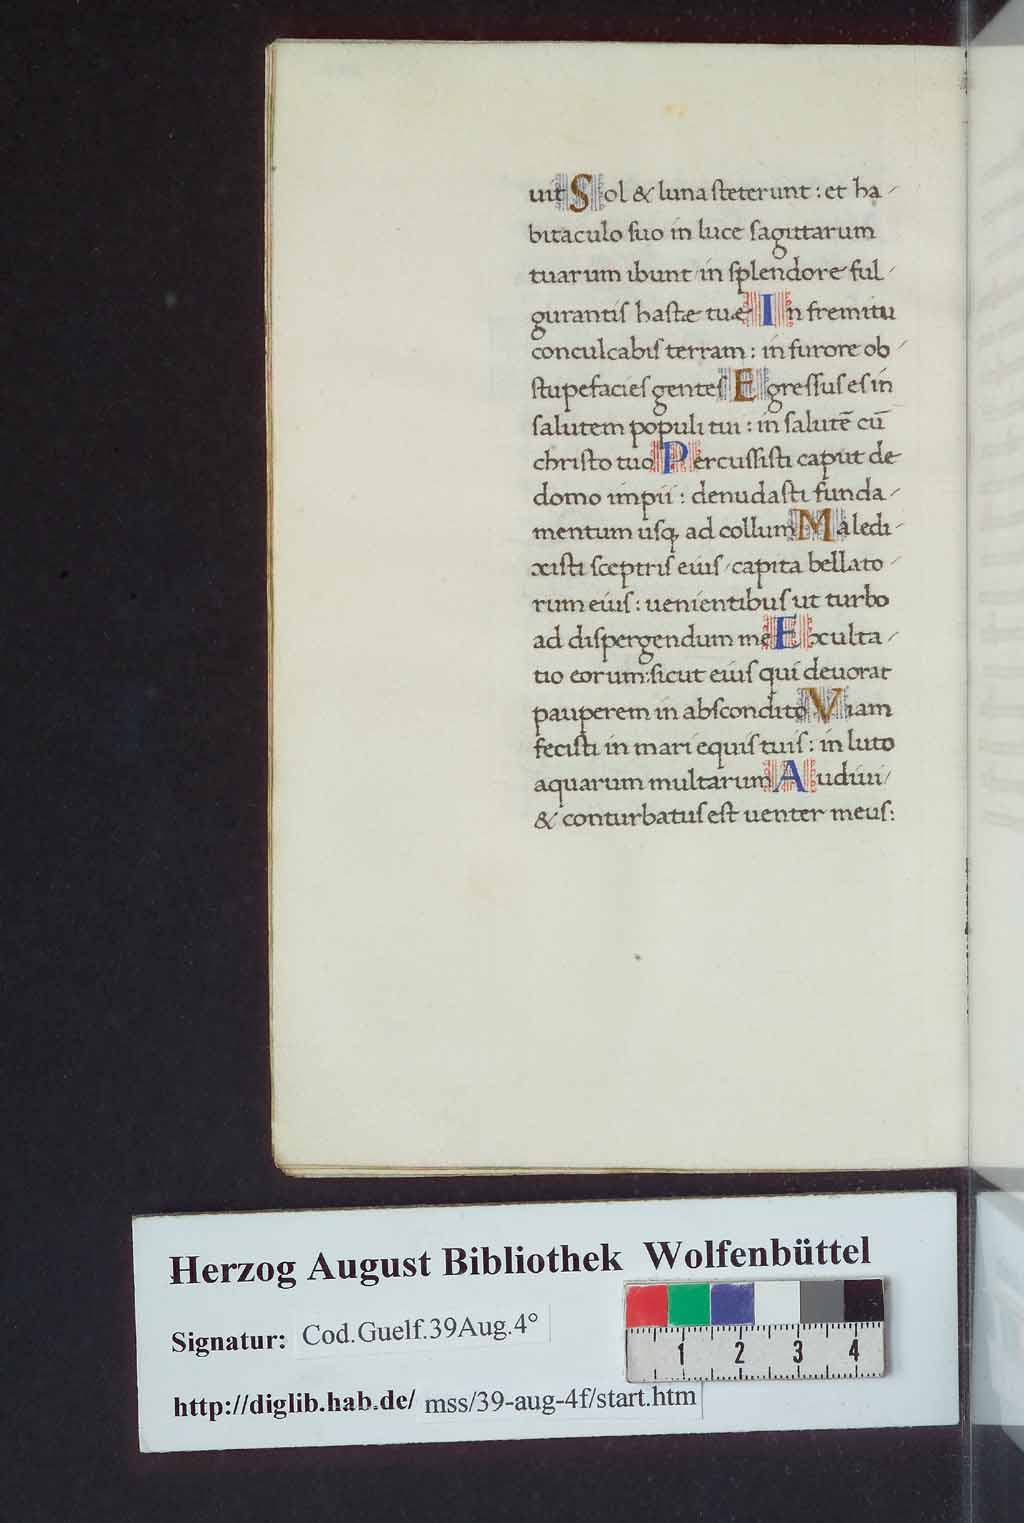 uit Sol & luna ſteterunt : et ha⸗
bitaculo ſuo in luce ſagittarum
tuarum ibunt in ſplendore ful⸗
gurantiſ haſtæ tuæ In fremitu
conculcabiſ terram : in furore ob⸗
ſtupefacieſ genteſ Egreſſuſ eſ in
ſalutem populi tui : in ſalutē cū
chriſto tuo Percuſſiſti caput de
domo impii : denudaſti funda⸗
mentum uſq; ad collum Maledi⸗
xiſti ſceptriſ eiuſ / capita bellato⸗
rum eiuſ : uenientibuſ ut turbo
ad diſpergendum me Exculta⸗
tio eorum : ſicut eiuſ qui deuorat
pauperem in abſcondito Viam
feciſti in mari equiſ tuiſ : in luto
aquarum multarum Audiui /
& conturbatuſ eſt uenter meuſ :
Herzog August Bibliothek Wolfenbüttel
Signatur: Cod.Guelf.39Aug.4°
http://diglib.hab.de/ mss/39-aug-4f/start.htm
1 2 3 4